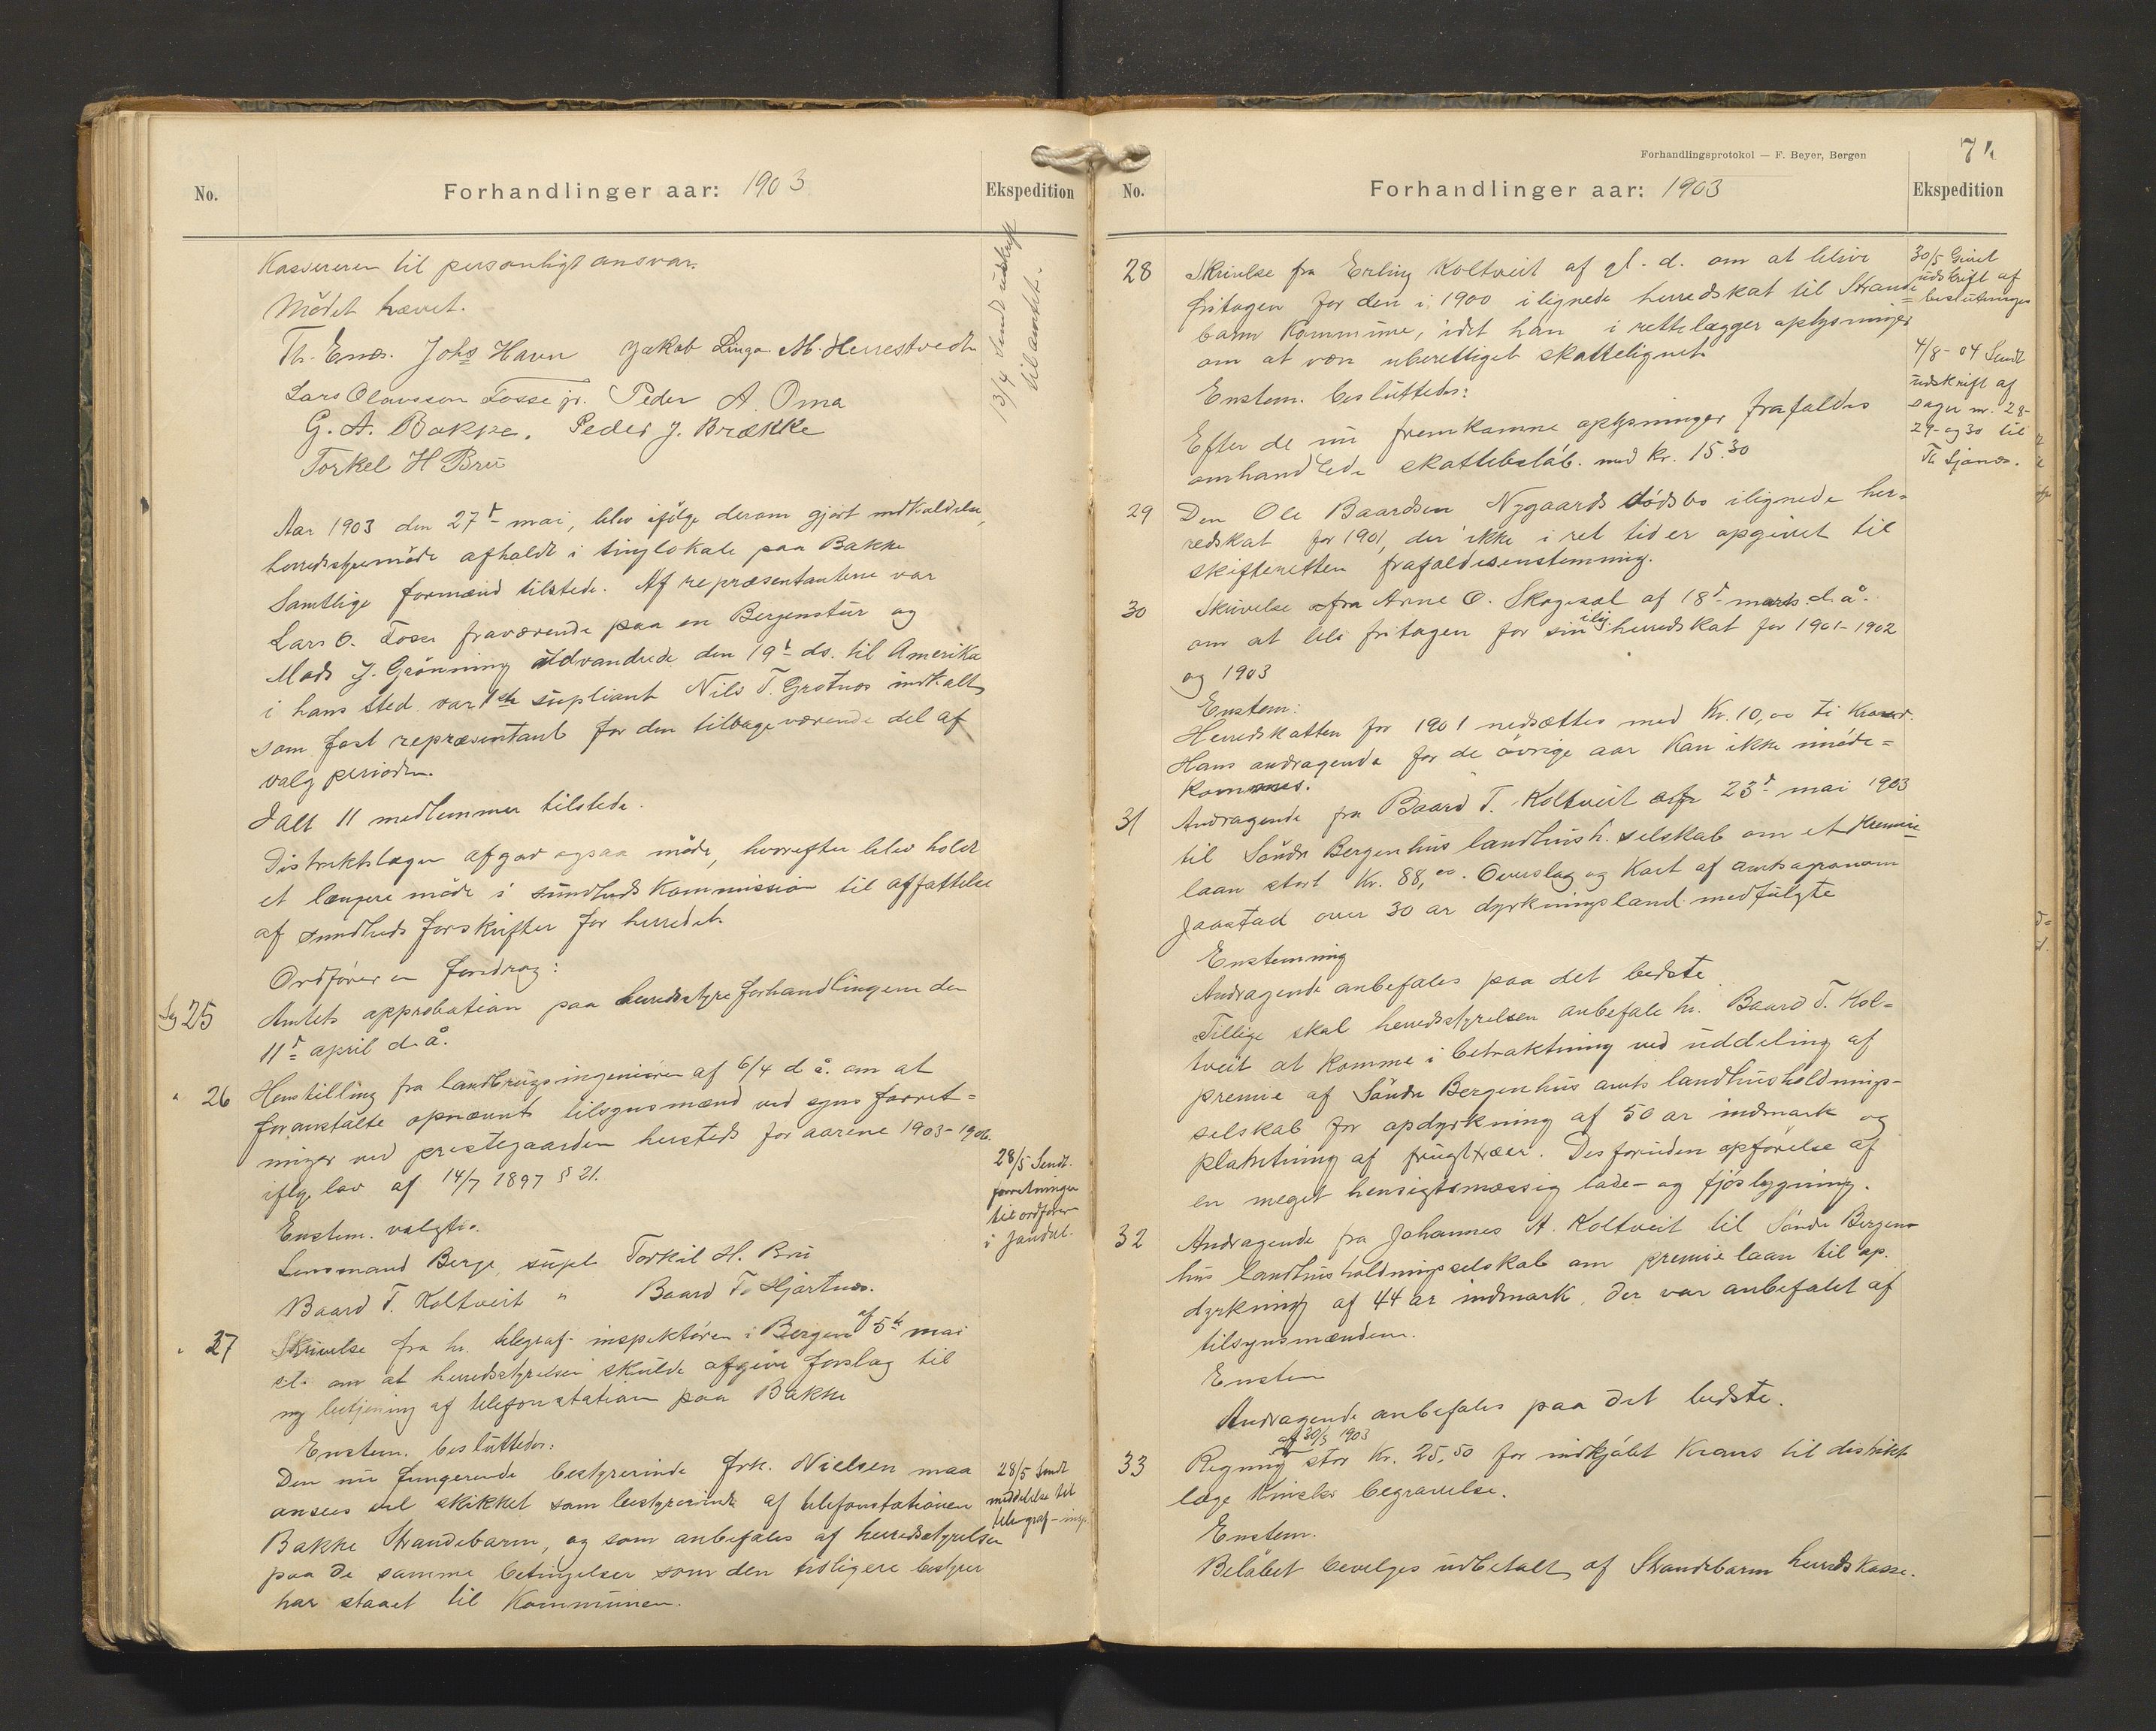 No.
Forhandlinger aar: 1903
Ekspedition
Kassereren til personligt ansvar.
Mödet hævet.
Th. Enes. Johs Havn Jakob Linga M. Herrestvedt
Lars Olavsson Fosse jr. Peder A. Oma
G. A. Bakke. Peder J. Brække
Torkel H Bru
13/4 Sendt udskrift
til amtet.
Aar 1903 den 27de mai, blev ifölge derom gjort indkaldelse,
herredsstyremöde afholdt i tinglokale paa Bakke
Samtlige formænd tilstede. Af repræsentanterne var
Lars O. Fosse fraværende paa en Bergenstur og
Mads J. Grönning udvandrede den 19de ds. til Amerika
i hans sted var 1ste supliant Nils T. Grotnes indkaldt
som fast repræsentant for den tilbageværende del af
valgperioden.
Ialt 11 medlemmer tilstede.
Distriktslægen afgav ogsaa möde, hvorefter blev holdt
et længere möde i sundhedskommission til affattelse
af sundheds forskrifter for herredet.
Ordföreren foredrog:
Sag 25 Amtets approbation paa herredsstyreforhandlingerne den
11te april d. å.
" 26 Henstilling fra landbrugsingeniören af 6/4 d å. om at
foranstalte opnævnt tilsynsmænd ved syns forret=
ninger ved prestegaarden hersteds for aarene 1903-1906
iflg. lov af 14/7 1897 § 21.
Enstem. valgtes.
Lensmand Berge, supl. Torkil H. Bru
Baard T. Koltveit " Baard T. Hjartnes.
28/5 Sendt.
forretningen
til ordförer
i Jondal.
" 27 Skrivelse fra hr. telegraf-inspektören i Bergen af 5te mai
d. om at herredsstyrelsen skulde afgive forslag til
ny betjening af telefonstation paa Bakke
Enstem. besluttedes:
Den nu fungerende bestyrerinde frk. Nielsen maa
ansees vel skikket som bestyrerinde af telefonstationen
Bakke Strandebarm, og som anbefales af herredsstyrelsen
paa de samme betingelser som den tidligere bestyrer
har staaet til Kommunen.
28/5 Sendt
meddelelse til
telegraf-insp.
Forhandlingsprotokol — F. Beyer, Bergen
74
No.
Forhandlinger aar: 1903
Ekspedition
28 Skrivelse fra Erling Koltveit af gl. d. om at blive
fritagen for den i 1900 ilignede herredskat til Strande=
barm Kommune, idet han i rettelægger oplysninger
om at være uberettiget skattelignet.
Enstem. besluttedes:
Efter de nu fremkomne oplysninger frafaldes
omhandlede skattebeløb. med kr. 15.30
30/5 Givet
udskrift af
beslutningen
4/8-04 Sendt
udskrift af
sager nr. 28-
29- og 30 til
Th. Sjones.
29 Den Ole Baardsen Nygaards dödsbo ilignede her=
redskat for 1901, der ikke i ret tid er opgivet til
skifteretten frafaldes enstemmig.
30 Skrivelse fra Arne O. Skogesal af 18de marts d. å.
om at bli fritagen for sin ilig. herredskat for 1901-1902
og 1903
Enstem:
Herredskatten for 1901 nedsættes med Kr. 10,00 ti Kroner.
Hans andragende for de övrige aar kan ikke imöde=
kommes.
31 Andragende fra Baard T. Koltveit af 23de mai 1903
til Söndre Bergenhus landhush. selskab om et premie=
laan stort Kr. 88,00. Overslag og Kart af amtsagronom
Jaastad over 30 ar dyrkningsland medfulgte
Enstemmig
Andragende anbefales paa det bedste
Tillige skal herredsstyrelsen anbefale hr. Baard T. Kol=
tveit at komme i betraktning ved uddeling af
premie af Söndre Bergenhus amts landhusholdnings-
selskab for opdyrkning af 50 ar indmark og
plantning af frugttræer. Desforuden opförelse af
en meget hensigtsmæssig lade- og fjösbygning.
32 Andragende fra Johannes A. Koltveit til Söndre Bergen=
hus landhusholdningsselskab om premielaan til op.
dyrkning af 44 ar indmark. Der var anbefalet af
tilsynsmændene.
Enstem
Andragende anbefales paa det bedste.
af 30/3 1903
33 Regning stor Kr. 25,50 for indkjöbt Krans til distrikts
læge begravelse.
Enstem.
Belöbet bevilges udbetalt af Strandebarm herredskasse.